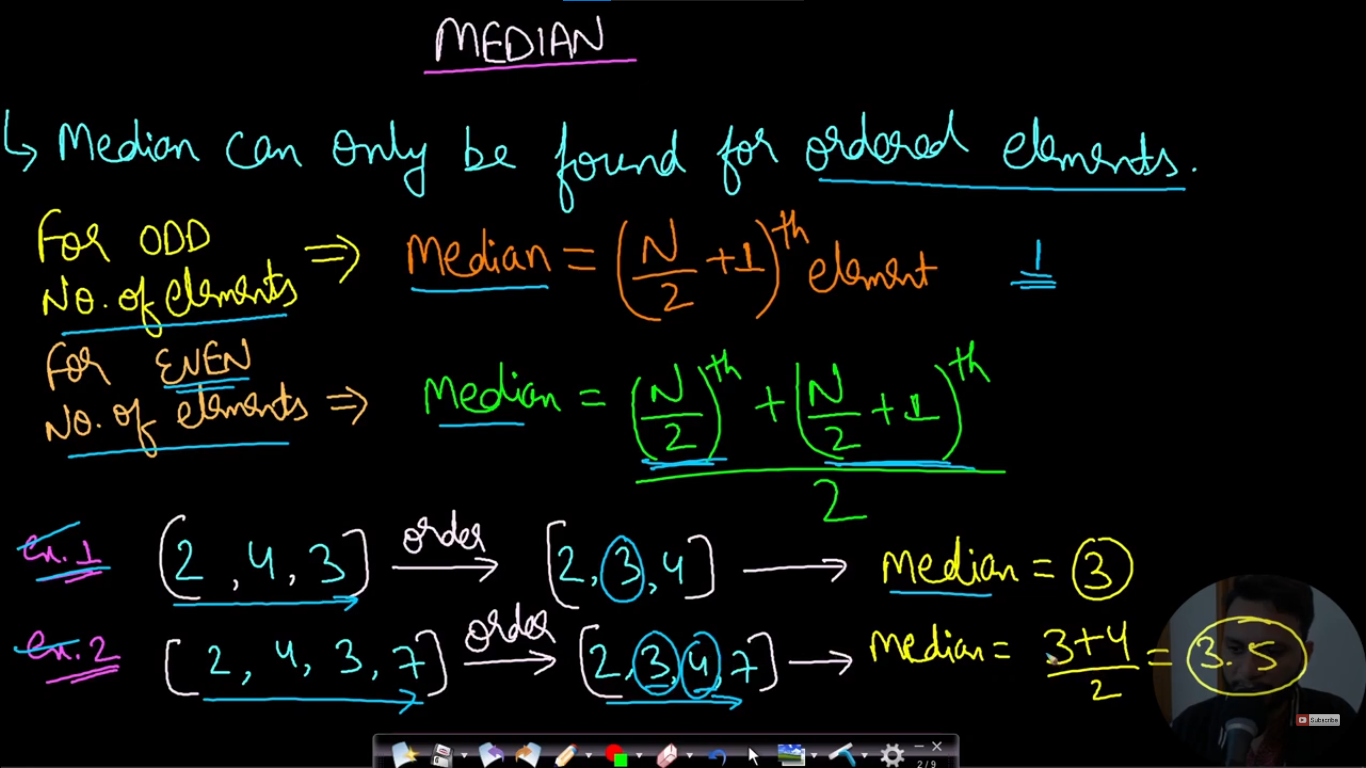 MEDIAN
↳ Median can only be found for ordered elements.
For ODD No. of elements ⇒ Median = (N/2 + 1)th element 1
For EVEN No. of elements ⇒ Median = ((N/2)th + (N/2 + 1)th) / 2
ex.1 [2, 4, 3] order → [2, 3, 4] → median = 3
ex.2 [2, 4, 3, 7] order → [2, 3, 4, 7] → median = (3+4)/2 = 3.5
Subscribe
2/9